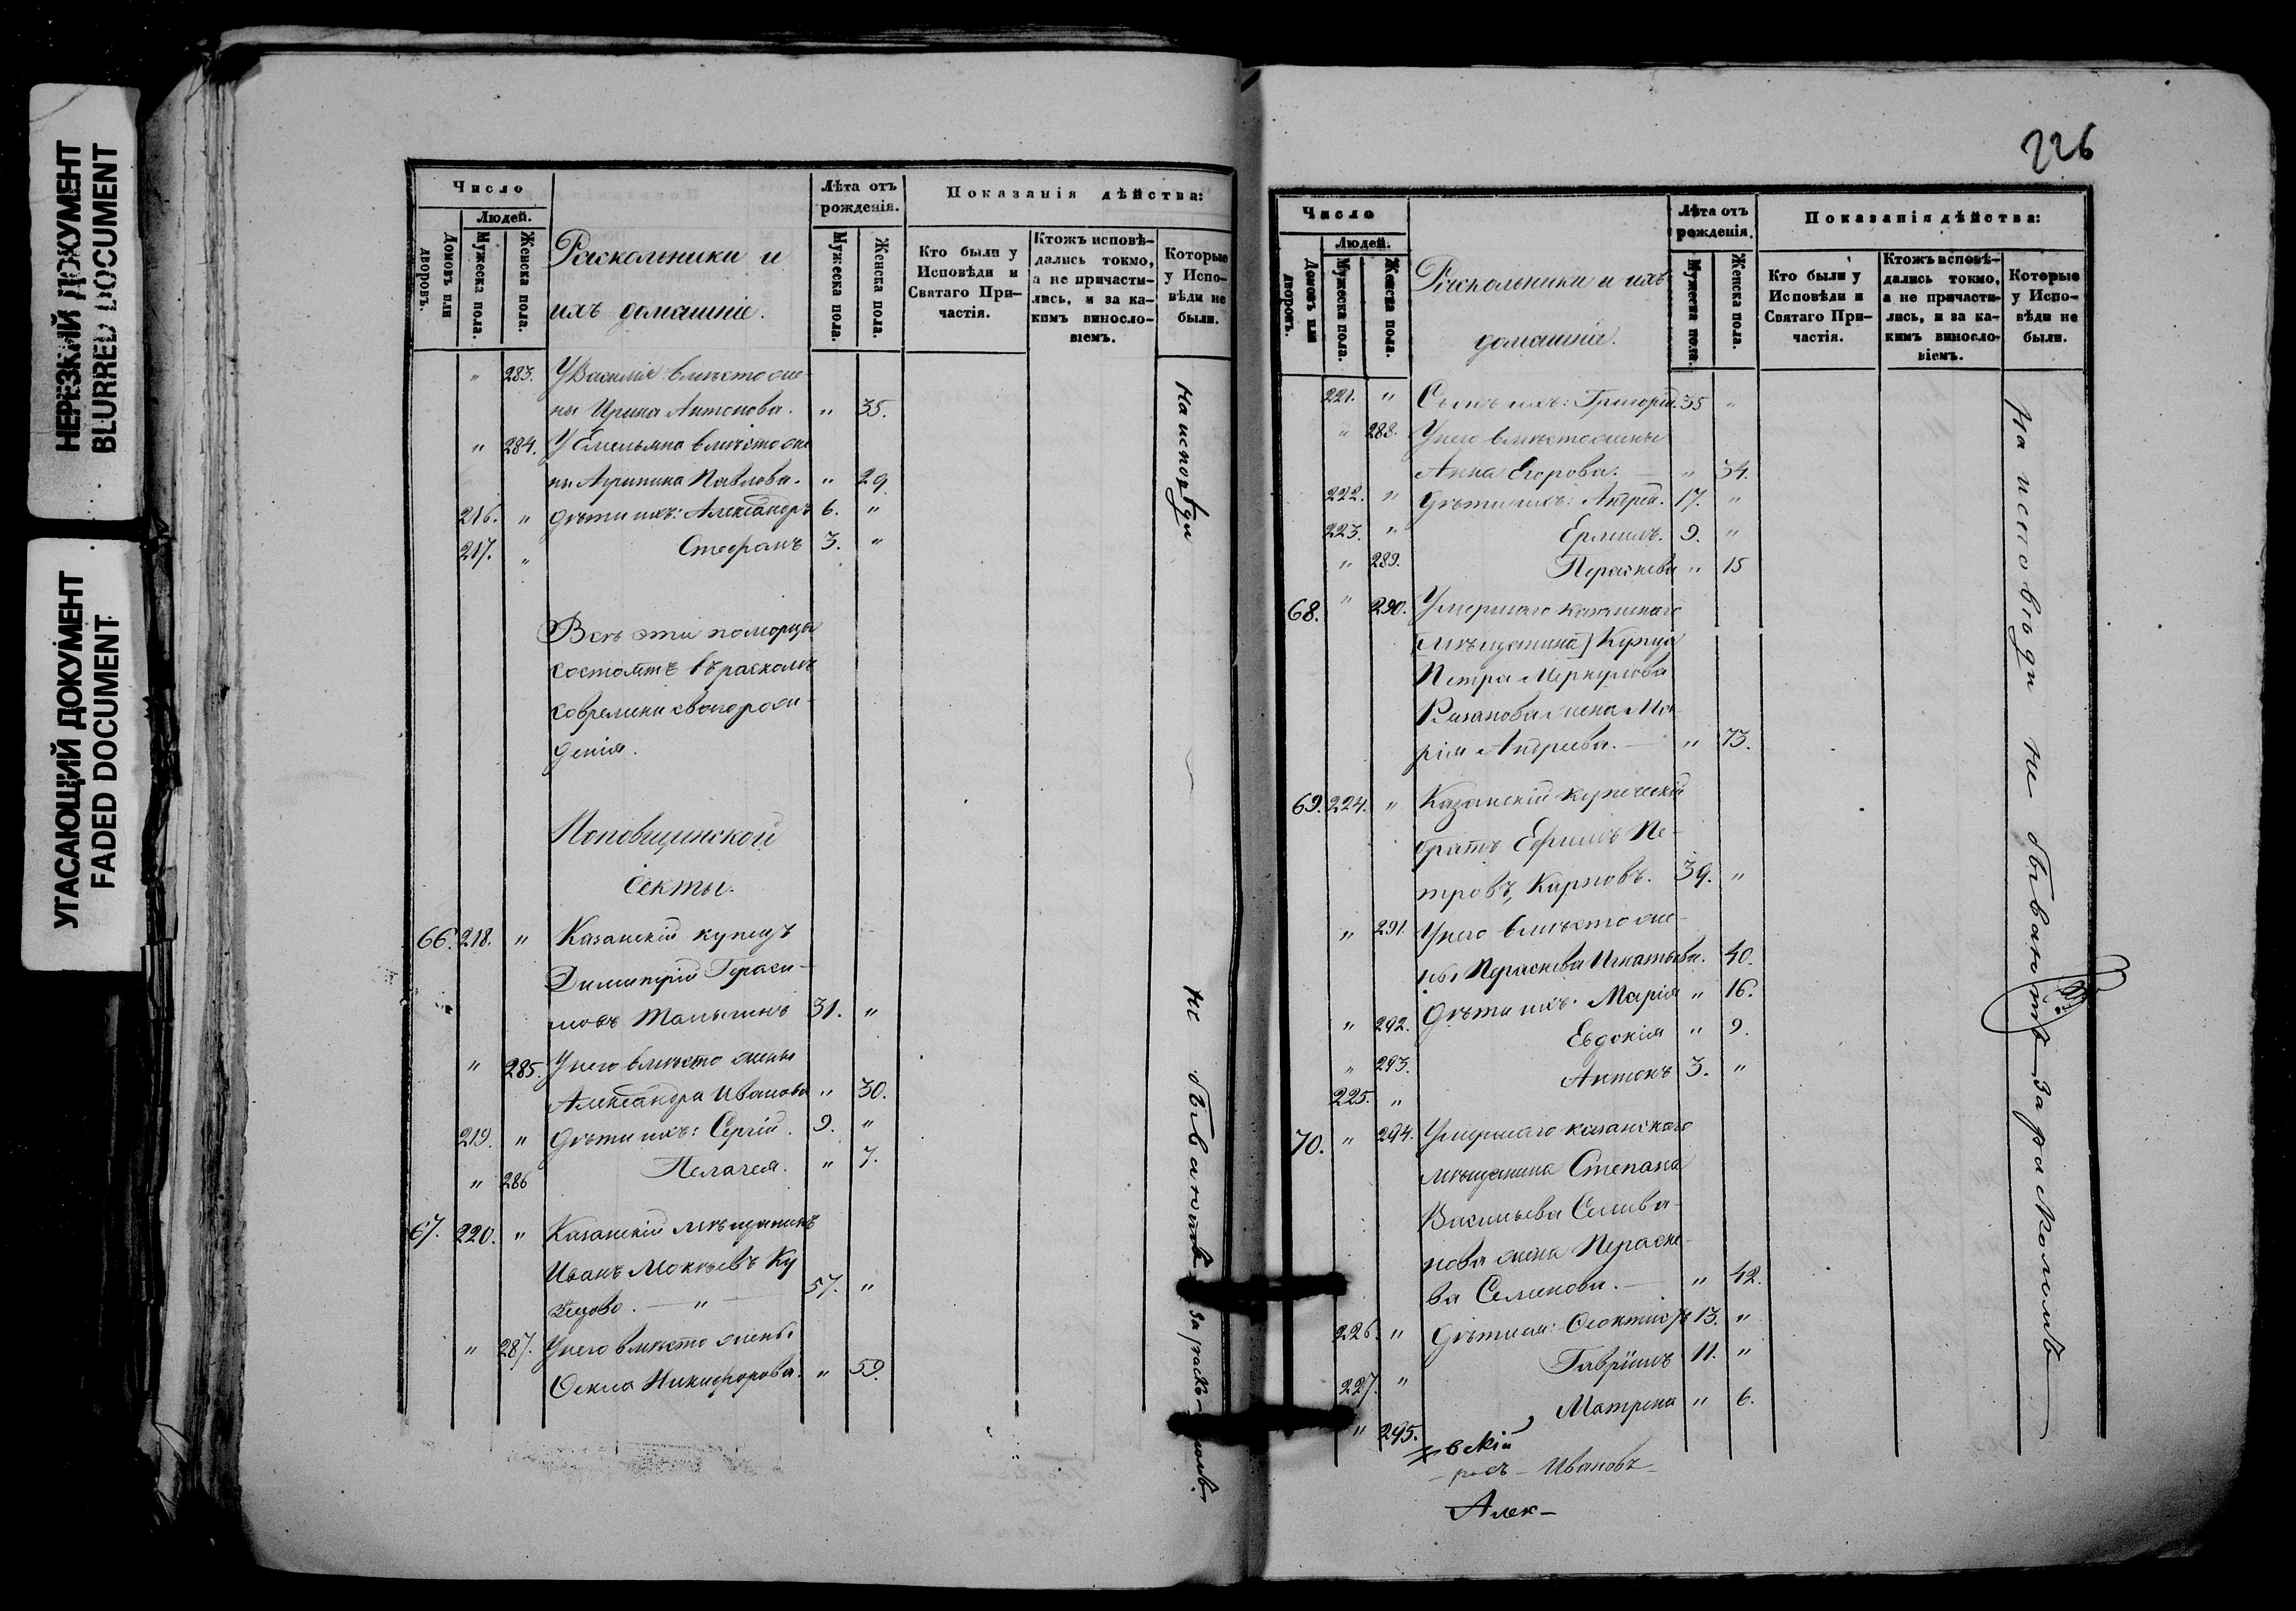 НЕРЕЗКИЙ ДОКУМЕНТ
BLURRED DOCUMENT
УГАСАЮЩИЙ ДОКУМЕНТ
FADED DOCUMENT
Число
Людей.
Домовъ или дворовъ.
Мужеска пола.
Женска пола.
Раскольники и
ихъ домашніе.
Лѣта отъ рожденія.
Мужеска пола.
Женска пола.
Показанія дѣйства:
Кто были у Исповѣди и Святаго При-
частія.
Ктожъ исповѣ-
дались токмо,
а не причасти-
лись, и за ка-
кимъ виносло-
віемъ.
Которые
у Испо-
вѣди не
были.
" 283. У Василія вмѣсто же-
ны Ирина Антонова. " 35.
" 284. У Емельяна вмѣсто же
ны Агрипина Павлова. " 29.
216. " Дѣти ихъ: Александръ 6. "
217. " Стефанъ 3. "
Всѣ эти поморцы
состоятъ въ расколѣ
со времени своего рож-
денія.
Поповщинской
секты.
66. 218. " Казанскій купецъ
Димитрій Гераси-
мовъ 31. "
" 285. У него вмѣсто жены
Александра Иванова " 30.
219. " Дѣти ихъ: Сергій. 9. "
" 286 Пелагея. " 7.
67. 220. " Казанскій мѣщанинъ
Иванъ Мокѣевъ
57. "
" 287. У него вмѣсто жены
Фекла Никифорова. " 59.
На исповѣди не бываютъ за расколомъ.
226
Число
Людей.
Домовъ или дворовъ.
Мужеска пола.
Женска пола.
Раскольники и ихъ
домашніе.
Лѣта отъ рожденія.
Мужеска пола.
Женска пола.
Показанія дѣйства:
Кто были у
Исповѣди и
Святаго При-
частія.
Ктожъ исповѣ-
дались токмо,
а не причасти-
лись, и за ка-
кимъ виносло-
віемъ.
Которые
у Испо-
вѣди не
были.
221. " Сынъ ихъ: Григорій. 35 "
" 288. У него вмѣсто жены
Анна Егорова. " 34.
222. " Дѣти ихъ: Андрей. 17. "
223. " Ермилъ. 9. "
" 289. Параскева " 15
68. " 290. Умершаго казанскаго
[мѣщанина] Купца
Петра Меркулова
Рязанова жена Ма-
рія Андреева. " 73.
69. 224. " Казанскій купеческій
братъ Ефимъ Пе-
тровъ, Карповъ. 39. "
" 291. У него вмѣсто же-
ны Параскева Игнатьева. 40.
" 292. Дѣти ихъ: Марія " 16.
" 293. Евдокія " 9.
225. " Антонъ 3. "
70. " 294. Умершаго казанскаго
мѣщанина Степана
Васильева Селива-
нова жена Параске-
ва Семенова. " 42.
226. " Дѣти ея: Феоктистъ 13. "
227. " Гавріилъ 11. "
" 295. Матрена " 6.
На исповѣди не бываютъ за расколомъ
вскій
Ивановъ
Алек-